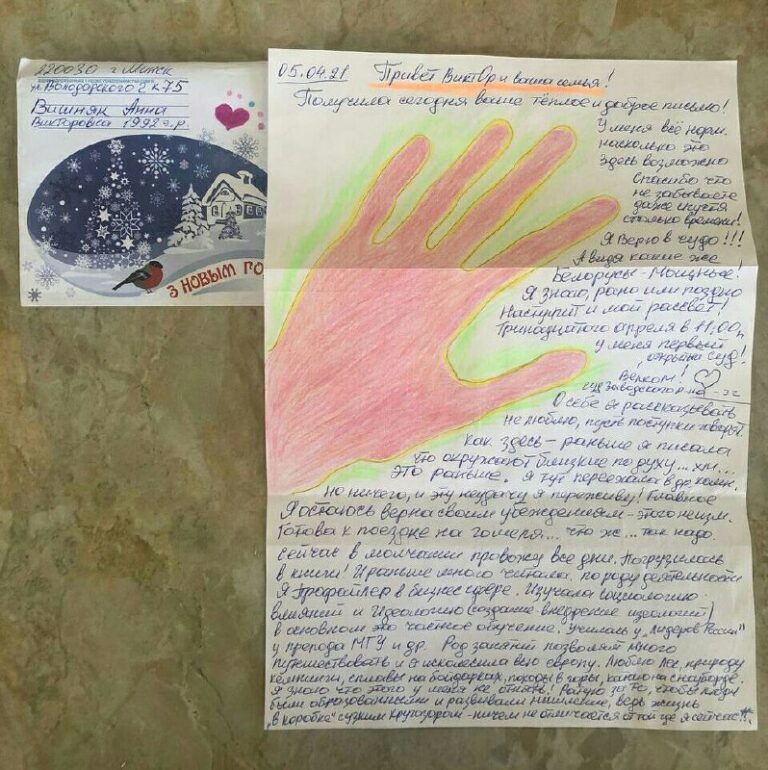 220030 г. Минск
ул. Володарского 2 к 75
Вишняк Анна
Викторовна 1992 г.р.
З НОВЫМ ГО
05.04.21 Привет Виктор и ваша семья!
Получила сегодня ваше тёплое и доброе письмо!
У меня всё норм.
насколько это
здесь возможно
Спасибо что
не забываете
даже спустя
столько времени!
Я Верю в чудо!!!
А видя какие же
Белорусы - Мощные!
Я знаю, рано или поздно
Наступит и мой рассвет!
Тринадцатого апреля в 11.00
у меня первый
открытый суд!
Велком!
суд Заводского р-на
О себе рассказывать
не люблю, пусть поступки говорят.
Как здесь - раньше я писала
что окружают близкие по духу... хм...
это раньше. Я тут переехала в др. комн.
Но ничего, и эту неудачу я переживу! Главное
Я остаюсь верна своим убеждениям - это неизм.
Готова к поездке на гомель... что ж... так надо.
Сейчас в молчании провожу все дни. Погрузилась
в книги! И раньше много читала, по роду деятельности
Я Профайлер в бизнес сфере. Изучала социологию
влияний и Идеологию (создание - внедрение идеологий)
в основном это частное обучение. Училась у "Лидеров России"
у препода МГУ и др. Род занятий позволял много
путешествовать и я исколесила всю европу. Люблю лес, природу
кемпинги, сплавы на байдарках, походы в горы, катаю на сноуборде.
Я знаю что этого у меня не отнять! Ратую за то, чтобы люди
были образованными и развивали мышление, ведь жизнь
"в коробке" с узким кругозором - ничем не отличается от той где я сейчас!